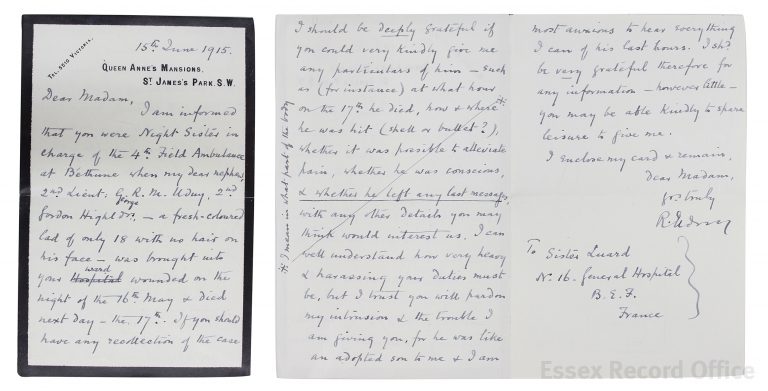 15th June 1915.
TEL. 5510 VICTORIA.
QUEEN ANNE'S MANSIONS,
ST JAMES'S PARK. S.W.
Dear Madam,
I am informed
that you were Night Sister in
charge of the 4th Field Ambulance
at Bethune when my dear nephew,
2nd Lieut: G. R. M. Udny, 2nd
George
Gordon Highldrs. – a fresh-coloured
lad of only 18 with no hair on
his face – was brought into
ward
your Hospital wounded on the
night of the 16th May & died
next day – the 17th. If you should
have any recollection of the case
I should be deeply grateful if
you could very kindly give me
any particulars of him – such
as (for instance) at what hour
on the 17th he died, how & where *
he was hit (shell or bullet?),
whether it was possible to alleviate
pain, whether he was conscious,
& whether he left any last message,
with any other details you may
think would interest us. I can
well understand how very heavy
& harassing your Duties must
be, but I trust you will pardon
my intrusion & the trouble I
am giving you, for he was like
an adopted son to me & I am
* I mean in what part of the body
most anxious to hear everything
I can of his last hours. I shd
be very grateful therefore for
any information – however little –
you may be able kindly to spare
leisure to give me.
I enclose my card & remain,
Dear Madam,
yrs truly
R. Udny
To Sister Luard
No 16. General Hospital
B.E.F.
France
Essex Record Office